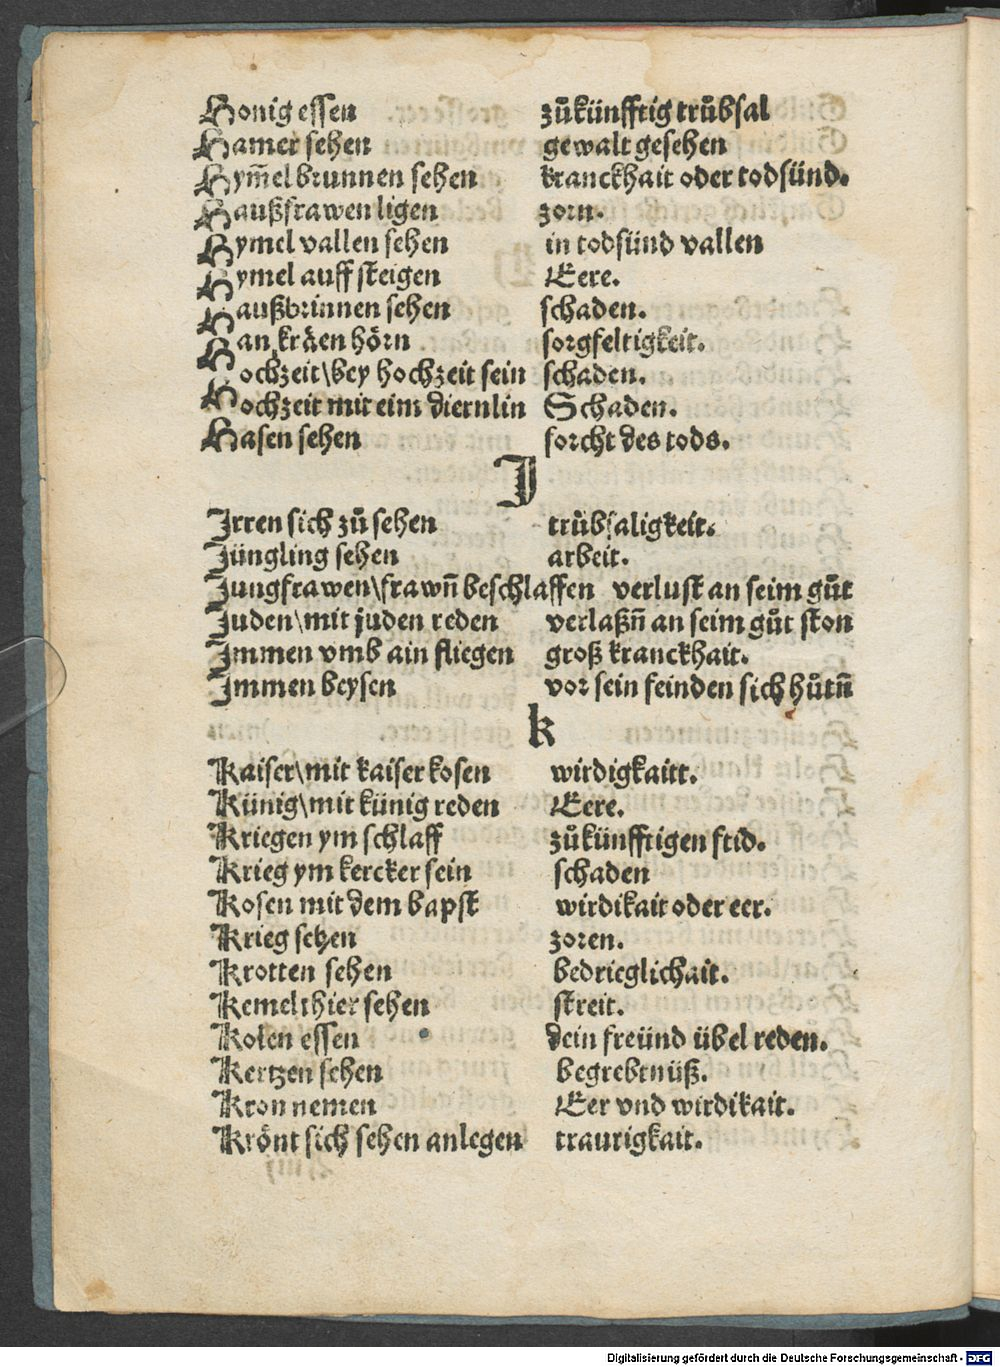 Honig essen zůkünfftig trůbsal
Hamer sehen gewalt gesehen
Hym̃el brunnen sehen kranckhait oder todsünd.
Haußfrawen ligen zorn.
Hymel vallen sehen in todsünd vallen
Hymel auff steigen Eere.
Haußbrinnen sehen schaden.
Han kräen hörn sorgfeltigkeit.
Hochzeit\bey hochzeit sein schaden.
Hochzeit mit eim diernlin Schaden.
Hasen sehen forcht des tods.
J
Irren sich zů sehen trůbsaligkeit.
Jüngling sehen arbeit.
Jungfrawen\frawñ beschlaffen verlust an seim gůt
Juden\mit juden reden verlaßñ an seim gůt ston
Immen vmb ain fliegen groß kranckhait.
Immen beysen vor sein feinden sich hůtñ
k
Kaiser\mit kaiser kosen wirdigkaitt.
Künig\mit künig reden Eere.
Kriegen ym schlaff zůkünfftigen frid.
Krieg ym kercker sein schaden
Kosen mit dem bapst wirdikait oder eer.
Krieg sehen zoren.
Krotten sehen bedrieglichait.
Kemelthier sehen streit.
Kolen essen dein freünd übel reden.
Kertzen sehen begrebtnüß.
Kron nemen Eer vnd wirdikait.
Krönt sich sehen anlegen traurigkait.
Digitalisierung gefördert durch die Deutsche Forschungsgemeinschaft - DFG